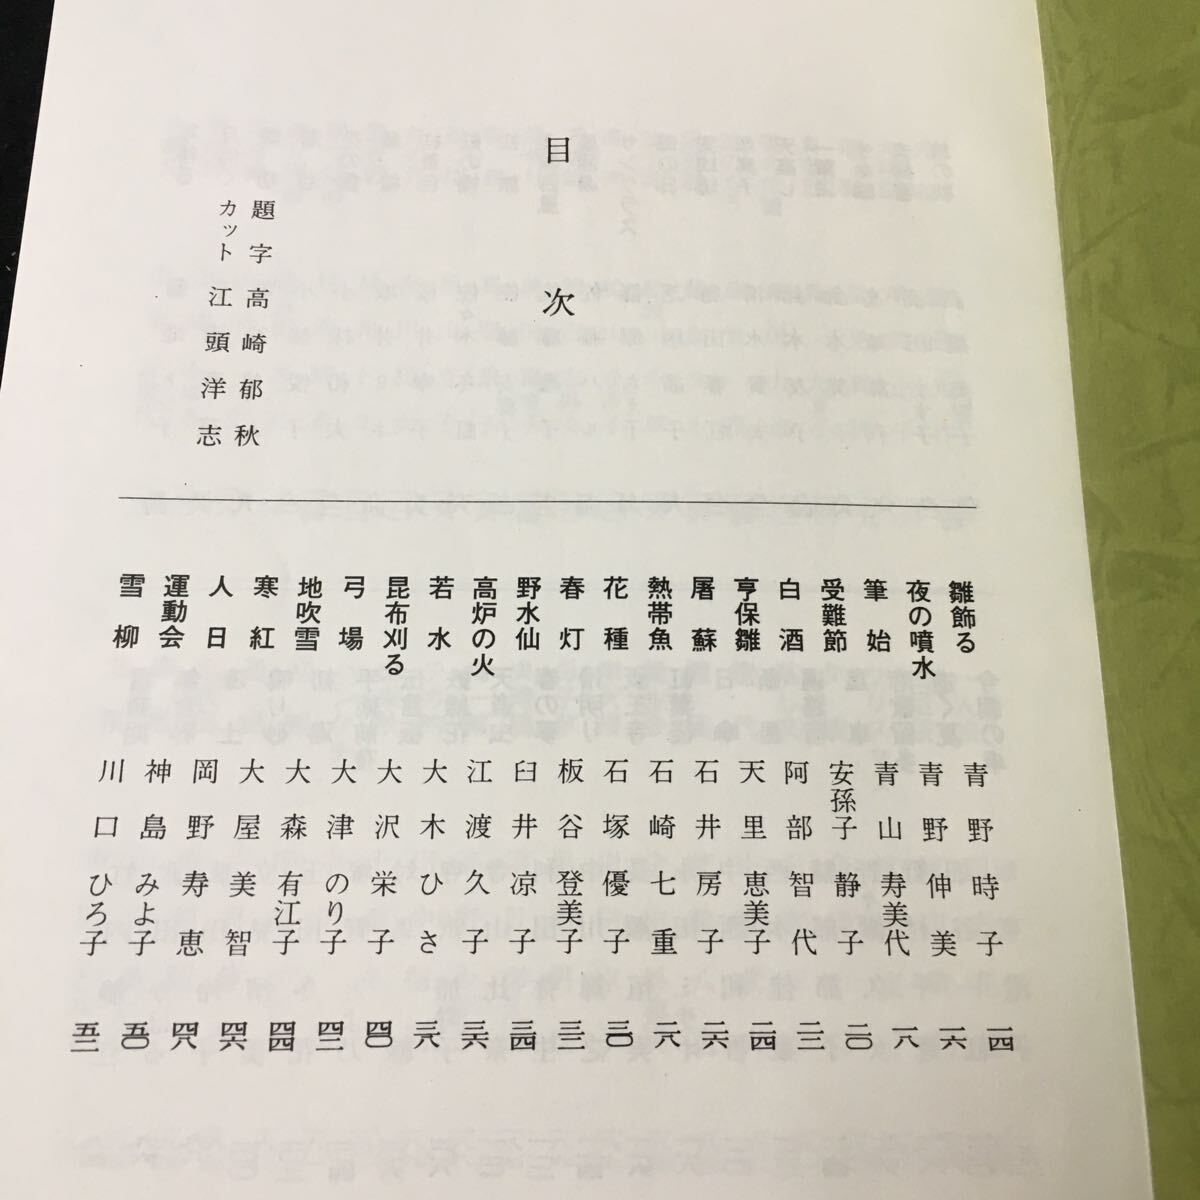 目次
題字 高崎郁秋
カット 江頭洋志
雛飾る 青野時子 一四
夜の噴水 青野伸美 一六
筆始 青山寿美代 一八
受難節 安孫子静子 二〇
白酒 阿部智代 二二
亨保雛 天里恵美子 二四
屠蘇 石井房子 二六
熱帯魚 石崎七重 二八
花種 石塚優子 三〇
春灯 板谷登美子 三二
野水仙 臼井凉子 三四
高炉の火 江渡久子 三六
若水 大木ひさ 三八
昆布刈る 大沢栄子 四〇
弓場 大津のり子 四二
地吹雪 大森有江子 四四
寒紅 大屋美智 四六
人日 岡野寿恵 四八
運動会 神島みよ子 五〇
雪柳 川口ひろ子 五二